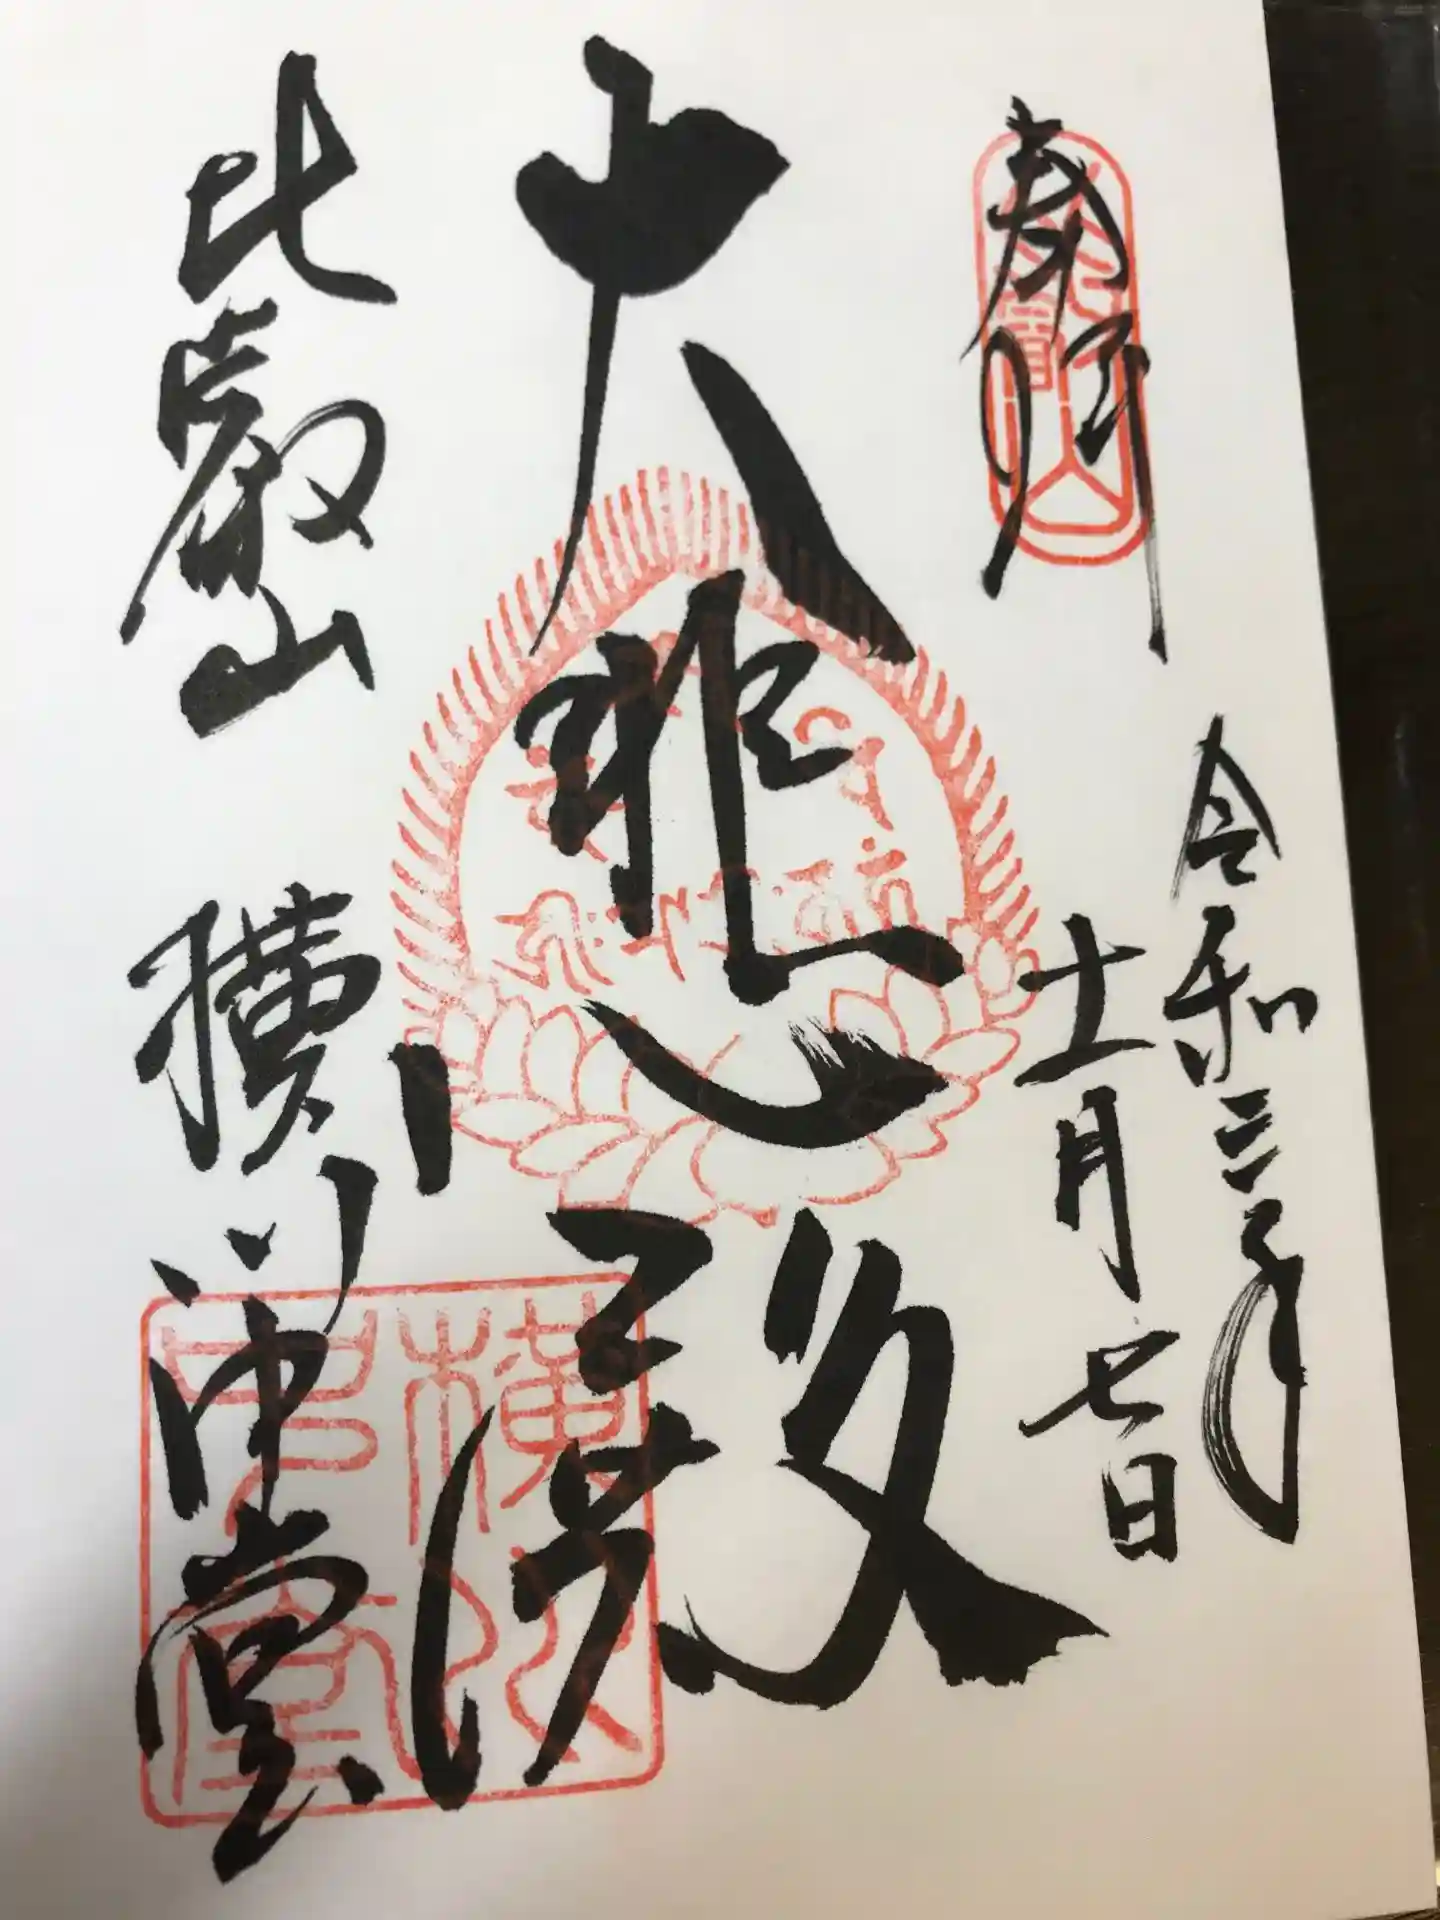 奉拝
令和三年
十一月七日
大悲殿
比叡山 横川中堂
横川
中堂